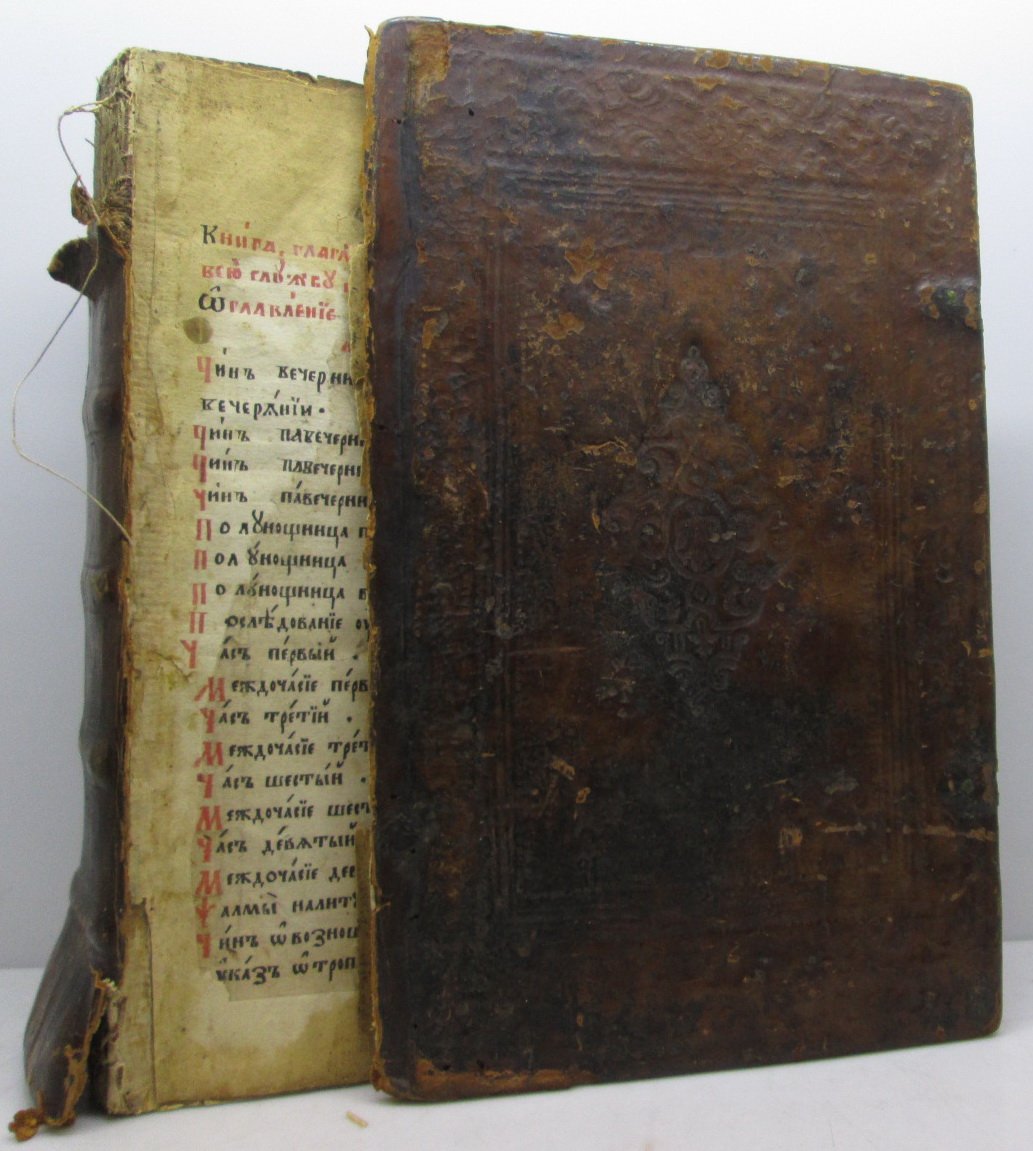 Кни́га, глаг
всю̀ слꙋ́жбꙋ
Ѡ҆главле́нїе
Чи́нъ вечерни
вечерѧ́нїи .
Чи́нъ паве́черни
Чи́нъ паве́черни
Чи́нъ па́вечерни
Полꙋ́нощница
Полꙋ́нощница
Полꙋ́нощница в
Послѣ́дованїе оу
Ча́съ пе́рвый .
Междоча́сїе пе́рв
Ча́съ тре́тїй .
Междоча́сїе тре́т
Ча́съ шесты́й .
Междоча́сїе шест
Ча́съ девѧ́тый
Междоча́сїе дев
Ѱалмы̀ налит
Чи́нъ ѡ҆возно
Оу҆ка́зъ ѡ҆троп